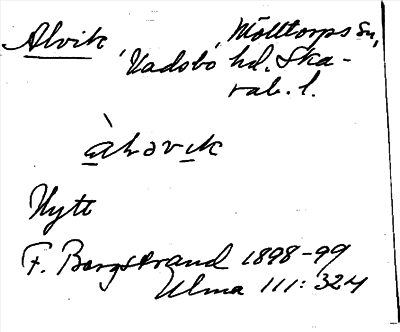 Alvik, Mölltorps sn,
Vadsbo hd. Ska-
rab. l.
àlvəvik
Nytt
F. Bergstrand 1898-99
Ulma 111: 324